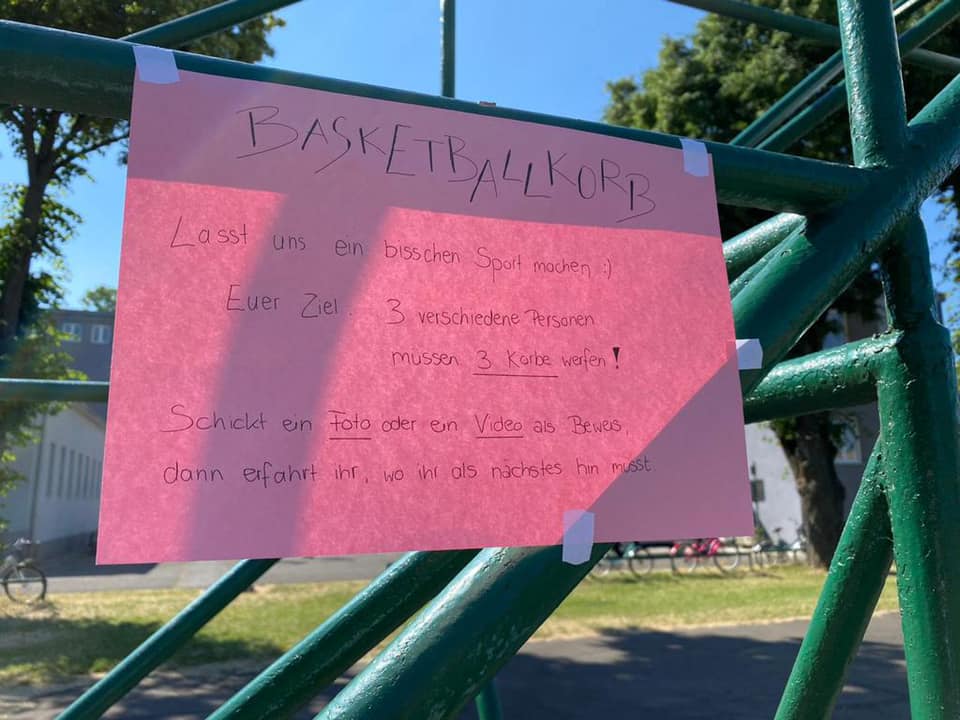 BASKETBALLKORB
Lasst uns ein bisschen Sport machen :)
Euer Ziel: 3 verschiedene Personen
müssen 3 Körbe werfen!
Schickt ein Foto oder ein Video als Beweis,
dann erfahrt ihr, wo ihr als nächstes hin müsst